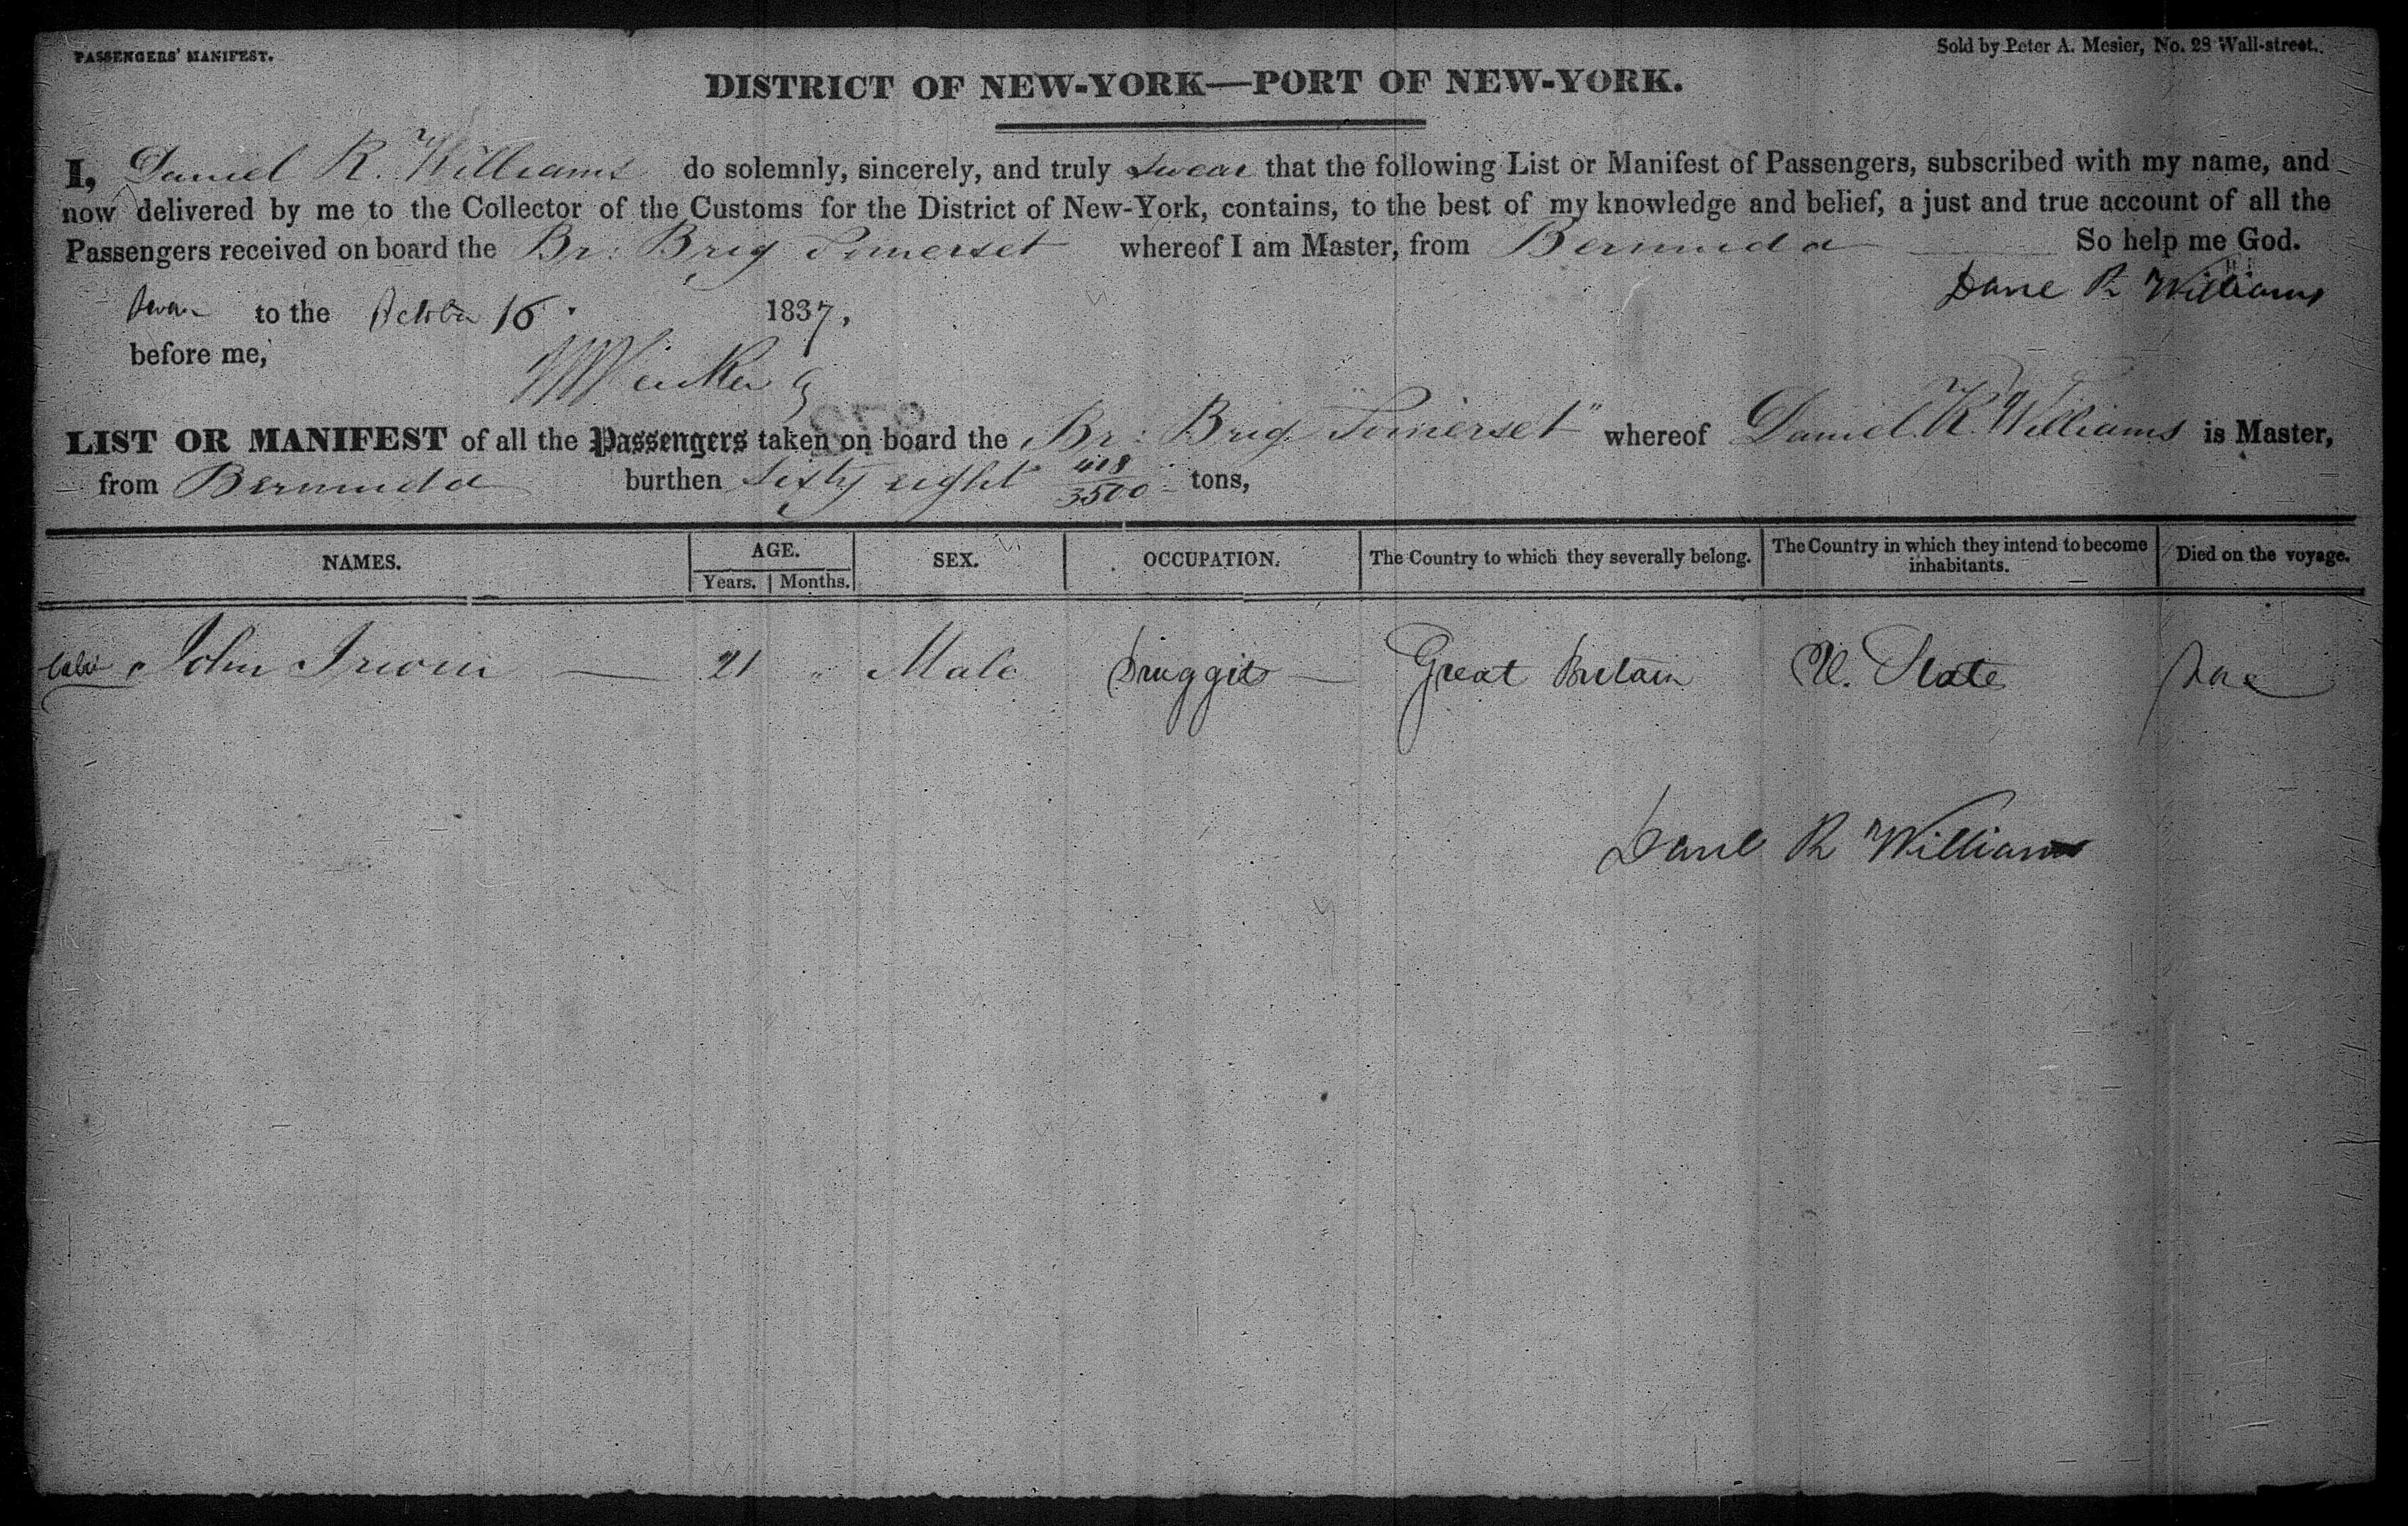 PASSENGERS' MANIFEST.
Sold by Peter A. Mesier, No. 28 Wall-street.
DISTRICT OF NEW-YORK—PORT OF NEW-YORK.
I, Daniel R. Williams do solemnly, sincerely, and truly swear that the following List or Manifest of Passengers, subscribed with my name, and
now delivered by me to the Collector of the Customs for the District of New-York, contains, to the best of my knowledge and belief, a just and true account of all the
Passengers received on board the Br: Brig Somerset whereof I am Master, from Bermuda So help me God.
Danl R Williams
to the October 16 1837,
before me,
LIST OR MANIFEST of all the Passengers taken on board the Br: Brig "Somerset" whereof Daniel R. Williams is Master,
from Bermuda burthen Sixty eight 418/3500 tons,
NAMES. AGE. SEX. OCCUPATION. The Country to which they severally belong. The Country in which they intend to become inhabitants. Died on the voyage.
Years. Months.
John Irwin 21 " Male Druggist Great Britain U. States
Danl R Williams